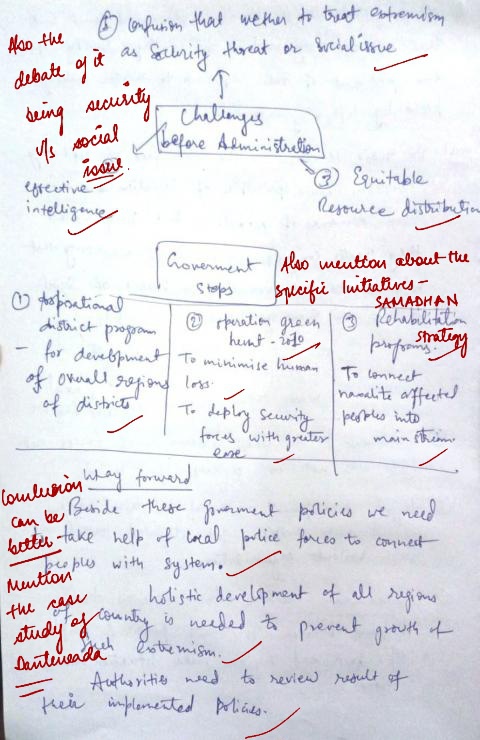 ① Confusion that wether to treat extremism
as Security threat or Social issue
Also the
debate of it
being security
v/s social
issue.
Challenges
before Administration
effective
intelligence
③ Equitable
Resource distribution
Goverment
Steps
Also mention about the
specific Initiatives -
SAMADHAN
strategy
① Aspirational
district program
- for development
of overall regions
of districts
② operation green
hunt - 2010
To minimise human
loss.
To deploy security
forces with greater
ease
③ Rehabilitation
programs.
To connect
naxalite affected
peoples into
main stream
Way forward
Conclusion
can be
better -
Mention
the case
study of
Dantewada
Beside these goverment policies we need
to take help of local police forces to connect
peoples with system.
holistic development of all regions
of country is needed to prevent growth of
such extremism.
Authorities need to review result of
their implemented policies.